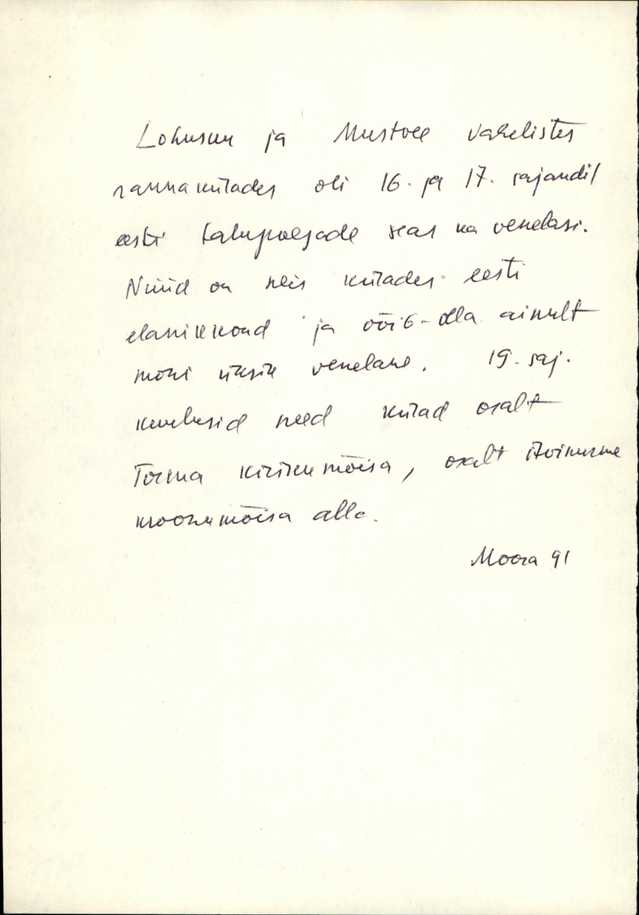 Lohusuu ja Mustvee vahelistes
rannakülades oli 16. ja 17. sajandil
eesti talupoegade seas ka venelasi.
Nüüd on neis külades eesti
elanikkond ja võib-olla ainult
mõni üksik venelane. 19. saj.
kuulusid need külad osalt
Torma kirikumõisa, osalt
kroonumõisa alla.
Moora 91